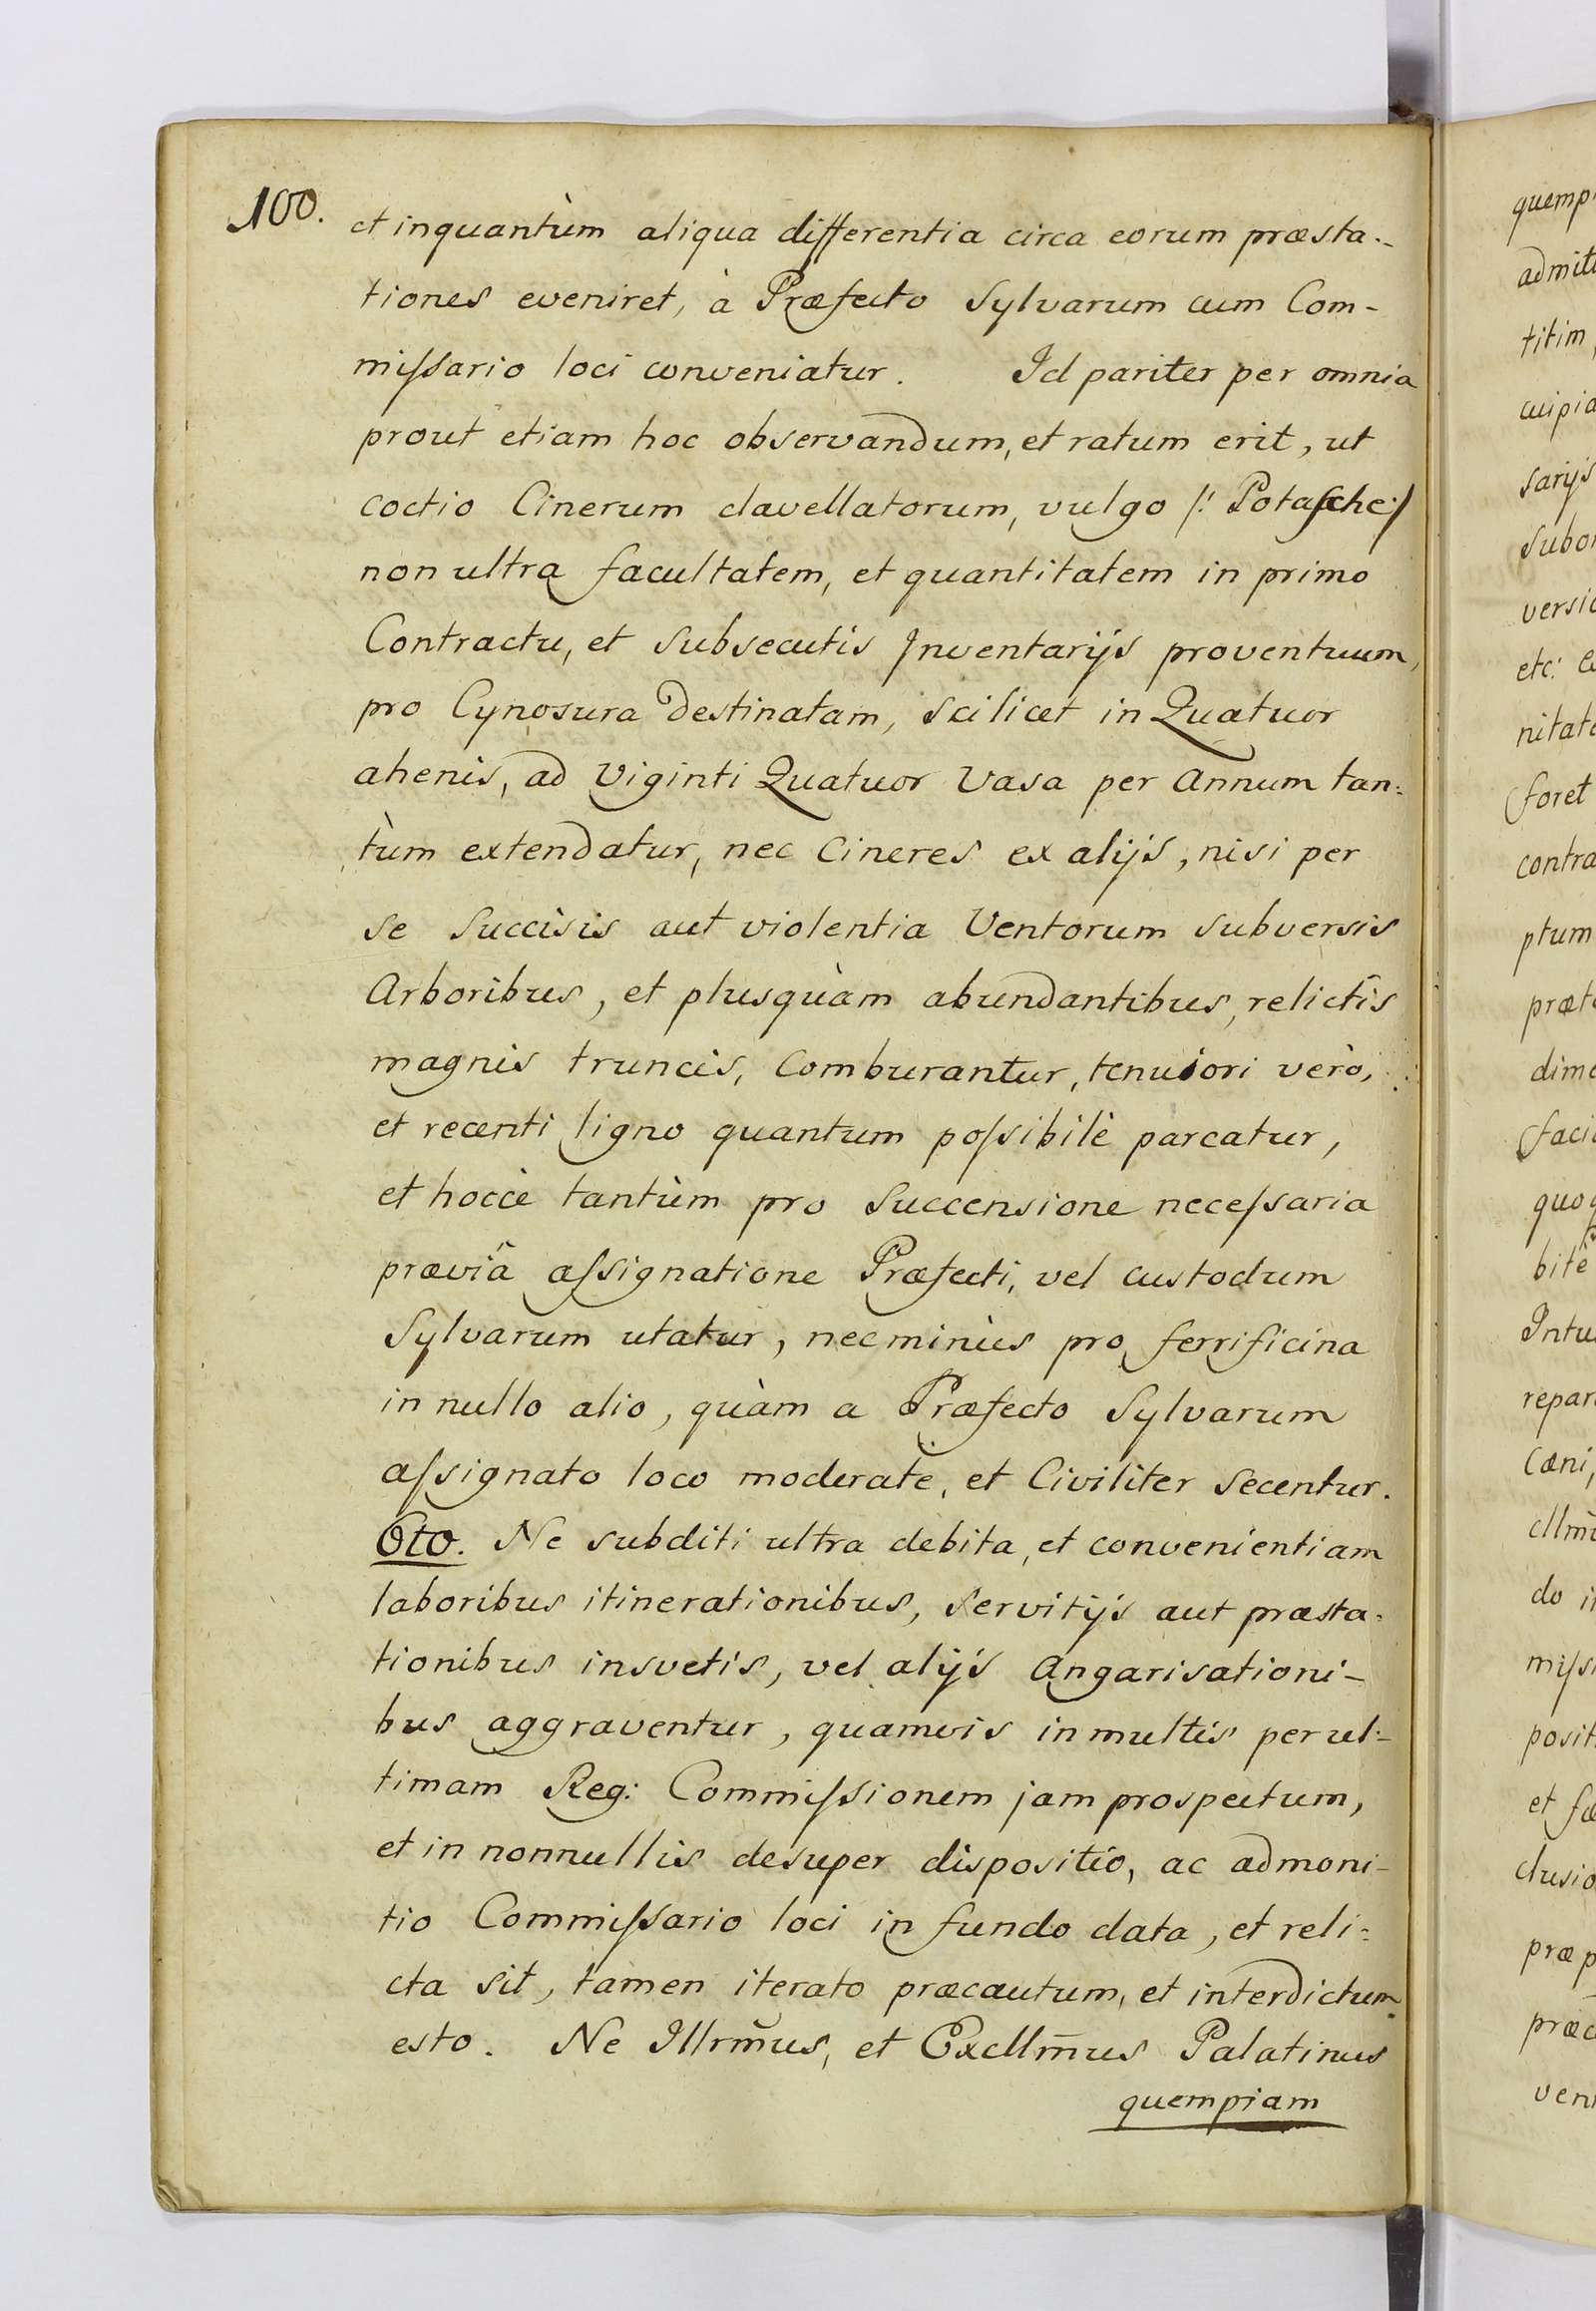 100.
et inquantùm aliqua differentia circa eorum præsta-
tiones eveniret, à Præfecto Sylvarum cum Com-
mißario loci conveniatur. Id pariter per omnia
prout etiam hoc observandum, et ratum erit, ut
coctio Cinerum clavellatorum, vulgo /: Potasche :/
non ultra facultatem, et quantitatem in primo
Contractu, et subsecutis Inventarijs proventuum,
pro Cynosura destinatam, scilicet in Quatuor
ahenis, ad Viginti Quatuor Vasa per Annum tan=
tùm extendatur, nec Cineres ex alijs, nisi per
se succisis aut violentia Ventorum subversis
Arboribus, et plusquàm abundantibus, relictis
magnis truncis, Comburantur, tenuiori verò,
et recenti ligno quantum poßibilè parcatur,
et hoccè tantùm pro Succensione neceßaria
præviâ aßignatione Præfecti, vel custodum
Sylvarum utatur, nec minùs pro ferrificina
in nullo alio, quàm a Præfecto Sylvarum
aßignato loco moderate, et Civiliter Secentur.
6to. Ne subditi ultra debita, et convenientiam
laboribus itinerationibus, servitijs aut præsta=
tionibus insvetis, vel alijs Angarisationi-
bus aggraventur, quamvis in multis per ul-
timam Reg: Commißionem jam prospectum,
et in nonnullis desuper dispositio, ac admoni-
tio Commißario loci in fundo data, et reli=
cta sit, tamen iterato præcautum, et interdictum
esto. Ne Illrm̃us, et Excllm̃us Palatinus
quempiam
quemp
admit
titim
cuipia
sarijs
subo
versi
etc:
nitat
foret
contra
ptum
præt
dim
faci
quo
bite
Intu
repar
Cæni,
do i
mißi
posit
et fæ
clusio
præ p
præc
ven